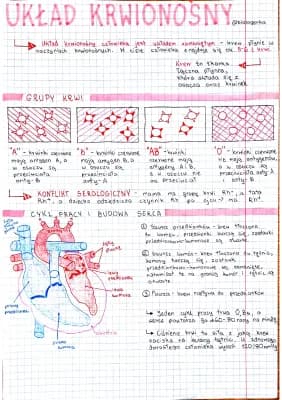 UKŁAD KRWIONOŚNY
@biologorka
→ Układ krwionośny człowieka jest układem zamkniętym - krew płynie w
naczyniach krwionośnych. W ciele człowieka znajduje się ok. 5-6 l krwi.
Krew to tkanka
łączna płynna,
która składa się z
osocza oraz krwinek
GRUPY KRWI
"A" - krwinki czerwone
mają antygen A, a
w osoczu są
przeciwciała
anty-B
"B" - krwinki czerwone
mają antygen B, a
w osoczu są
przeciwciała
anty-A
"AB" - krwinki
czerwone mają
antygeny A i
B, a w osoczu nie
ma przeciwciał
"O" - krwinki czerwone
nie mają antygenów,
a w osoczu są
przeciwciała anty-A
i anty-B
KONFLIKT SEROLOGICZNY - mama ma grupę krwi Rh-, a tata
Rh+, a dziecko odziedziczy czynnik Rh po ojcu → ma Rh+.
CYKL PRACY I BUDOWA SERCA
① Skurcz przedsionków - krew tłoczona
do komór, przedsionki kurczą się, zastawki
przedsionkowo-komorowe są otwarte.
② Skurcz komór - krew tłoczona do tętnic,
komory kurczą się, zastawki
przedsionkowo-komorowe są zamknięte,
natomiast te na granicy komór i tętnic są
otwarte.
③ Pauza - krew napływa do przedsionków
→ Jeden cykl pracy trwa 0,8s, a
serce powtarza go od 60-90 razy na minutę
→ Ciśnienie krwi to siła z jaką krew
naciska na ściany tętnic. U zdrowego
dorosłego człowieka wynosi 120/80 mmHg
prawy przedsionek
prawa komora
lewy przedsionek
lewa komora